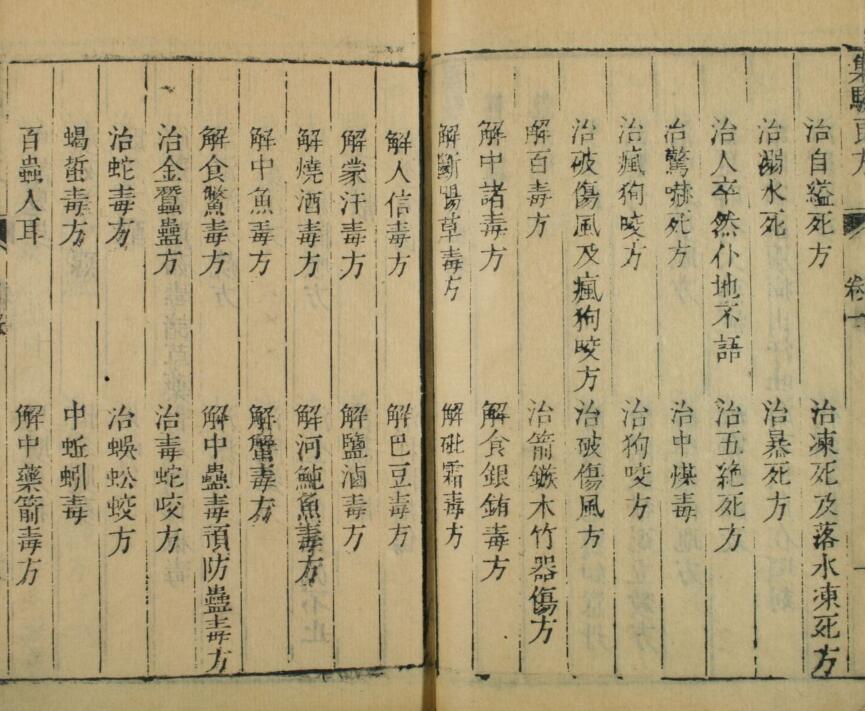 治自縊死方
治凍死及落水凍死方
治溺水死
治暴死方
治人卒然仆地不語
治五絶死方
治驚嚇死方
治中煤毒
治瘋狗咬方
治狗咬方
治破傷風及瘋狗咬方
治破傷風方
解百毒方
治箭鏃木竹器傷方
解中諸毒方
解食銀銪毒方
解斷腸草毒方
解砒霜毒方
解人信毒方
解巴豆毒方
解蒙汗毒方
解鹽滷毒方
解燒酒毒方
解河魨魚毒方
解中魚毒方
解蟹毒方
解食鱉毒方
解中蠱毒預防蠱毒方
治金蠶蠱方
治毒蛇咬方
治蛇毒方
治蜈蚣蛟方
蝎蜇毒方
中蚯蚓毒
百蟲入耳
解中藥箭毒方